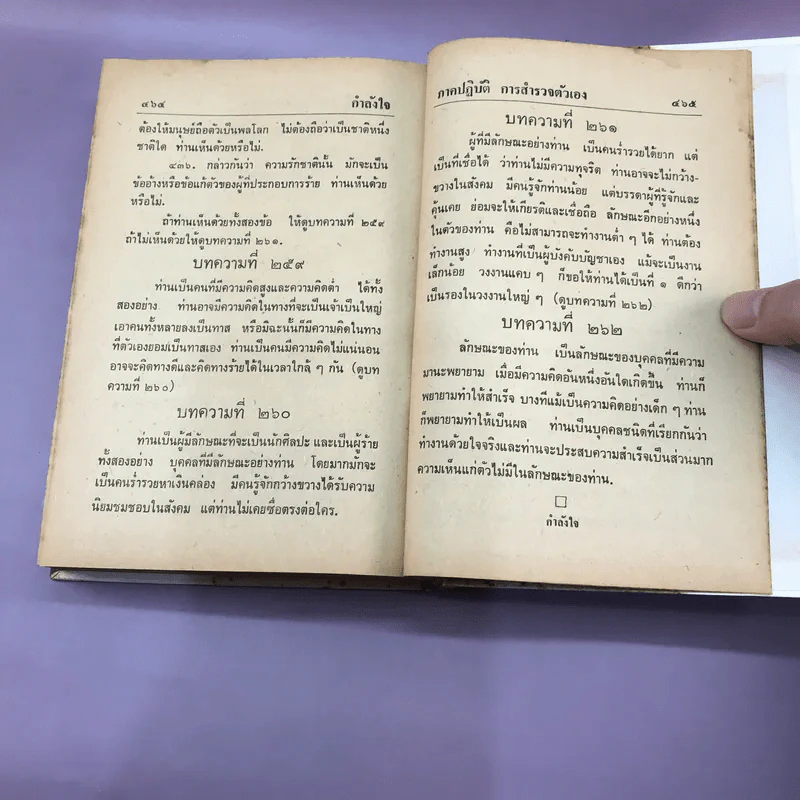 ๔๖๔ กำลังใจ
ต้องให้มนุษย์ถือตัวเป็นพลโลก ไม่ต้องถือว่าเป็นชาติหนึ่ง
ชาติใด ท่านเห็นด้วยหรือไม่.
๔๓๖. กล่าวกันว่า ความรักชาตินั้น มักจะเป็น
ข้ออ้างหรือข้อแก้ตัวของผู้ที่ประกอบการร้าย ท่านเห็นด้วย
หรือไม่.
ถ้าท่านเห็นด้วยทั้งสองข้อ ให้ดูบทความที่ ๒๕๙
ถ้าไม่เห็นด้วยให้ดูบทความที่ ๒๖๑.
บทความที่ ๒๕๙
ท่านเป็นคนที่มีความคิดสูงและความคิดต่ำ ได้ทั้ง
สองอย่าง ท่านอาจมีความคิดในทางที่จะเป็นเจ้าเป็นใหญ่
เอาคนทั้งหลายลงเป็นทาส หรือมิฉะนั้นก็มีความคิดในทาง
ที่ตัวเองยอมเป็นทาสเอง ท่านเป็นคนมีความคิดไม่แน่นอน
อาจจะคิดทางดีและคิดทางร้ายได้ในเวลาใกล้ ๆ กัน (ดูบท
ความที่ ๒๖๐)
บทความที่ ๒๖๐
ท่านเป็นผู้มีลักษณะที่จะเป็นนักศิลปะ และเป็นผู้ร้าย
ทั้งสองอย่าง บุคคลที่มีลักษณะอย่างท่าน โดยมากมักจะ
เป็นคนร่ำรวยหาเงินคล่อง มีคนรู้จักกว้างขวางได้รับความ
นิยมชมชอบในสังคม แต่ท่านไม่เคยซื่อตรงต่อใคร.
ภาคปฏิบัติ การสำรวจตัวเอง ๔๖๕
บทความที่ ๒๖๑
ผู้ที่มีลักษณะอย่างท่าน เป็นคนร่ำรวยได้ยาก แต่
เป็นที่เชื่อได้ ว่าท่านไม่มีความทุจริต ท่านอาจจะไม่กว้าง-
ขวางในสังคม มีคนรู้จักท่านน้อย แต่บรรดาผู้ที่รู้จักและ
คุ้นเคย ย่อมจะให้เกียรติและเชื่อถือ ลักษณะอีกอย่างหนึ่ง
ในตัวของท่าน คือไม่สามารถจะทำงานต่ำ ๆ ได้ ท่านต้อง
ทำงานสูง ทำงานที่เป็นผู้บังคับบัญชาเอง แม้จะเป็นงาน
เล็กน้อย วงงานแคบ ๆ ก็ขอให้ท่านได้เป็นที่ ๑ ดีกว่า
เป็นรองในวงงานใหญ่ ๆ (ดูบทความที่ ๒๖๒)
บทความที่ ๒๖๒
ลักษณะของท่าน เป็นลักษณะของบุคคลที่มีความ
มานะพยายาม เมื่อมีความคิดอันหนึ่งอันใดเกิดขึ้น ท่านก็
พยายามทำให้สำเร็จ บางทีแม้เป็นความคิดอย่างเด็ก ๆ ท่าน
ก็พยายามทำให้เป็นผล ท่านเป็นบุคคลชนิดที่เรียกกันว่า
ทำงานด้วยใจจริงและท่านจะประสบความสำเร็จเป็นส่วนมาก
ความเห็นแก่ตัวไม่มีในลักษณะของท่าน.
กำลังใจ